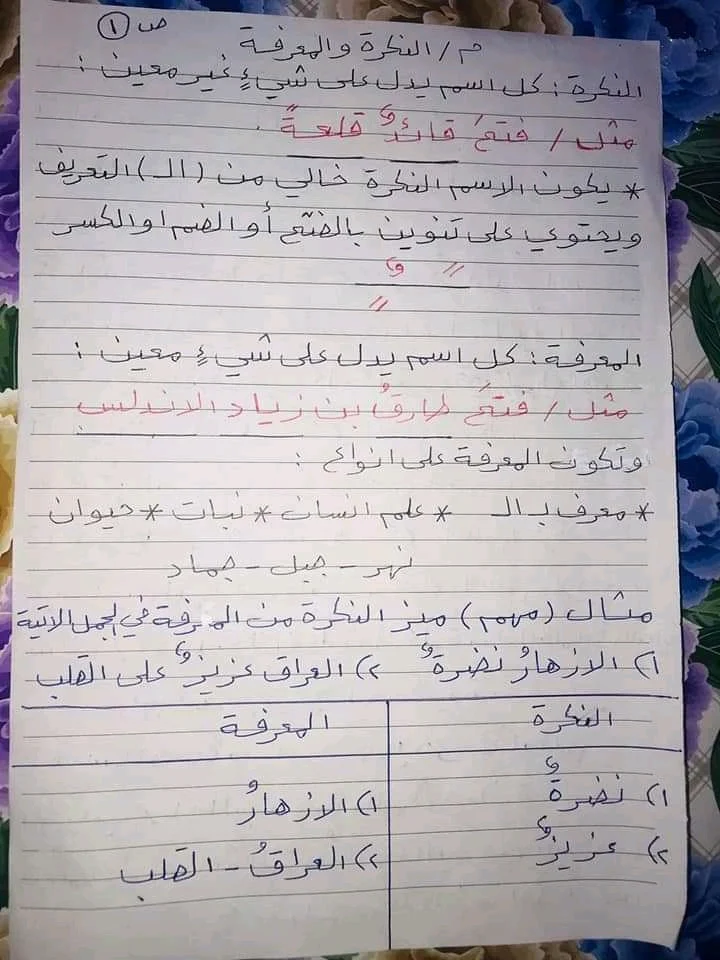 ص ١
م/ النكرة والمعرفة
النكرة : كل اسم يدل على شيءٍ غير معين :
مثل / فتحَ قائدٌ قلعةً .
* يكون الاسم النكرة خالي من (الـ) التعريف
ويحتوي على تنوين بالفتح أو الضم او الكسر
المعرفة : كل اسم يدل على شيءٍ معين :
مثل / فتحَ طارقُ بن زياد الاندلس
وتكون المعرفة على انواع :
* معرف بـ الـ * علم انسان * نبات * حيوان
نهر - جبل - جماد
مثال (مهم) ميز النكرة من المعرفة في الجمل الاتية
١) الازهارُ نضرةٌ ٢) العراق عزيزٌ على القلب
النكرة المعرفة
١) نضرةٌ ١) الازهارُ
٢) عزيزٌ ٢) العراقُ - القلب